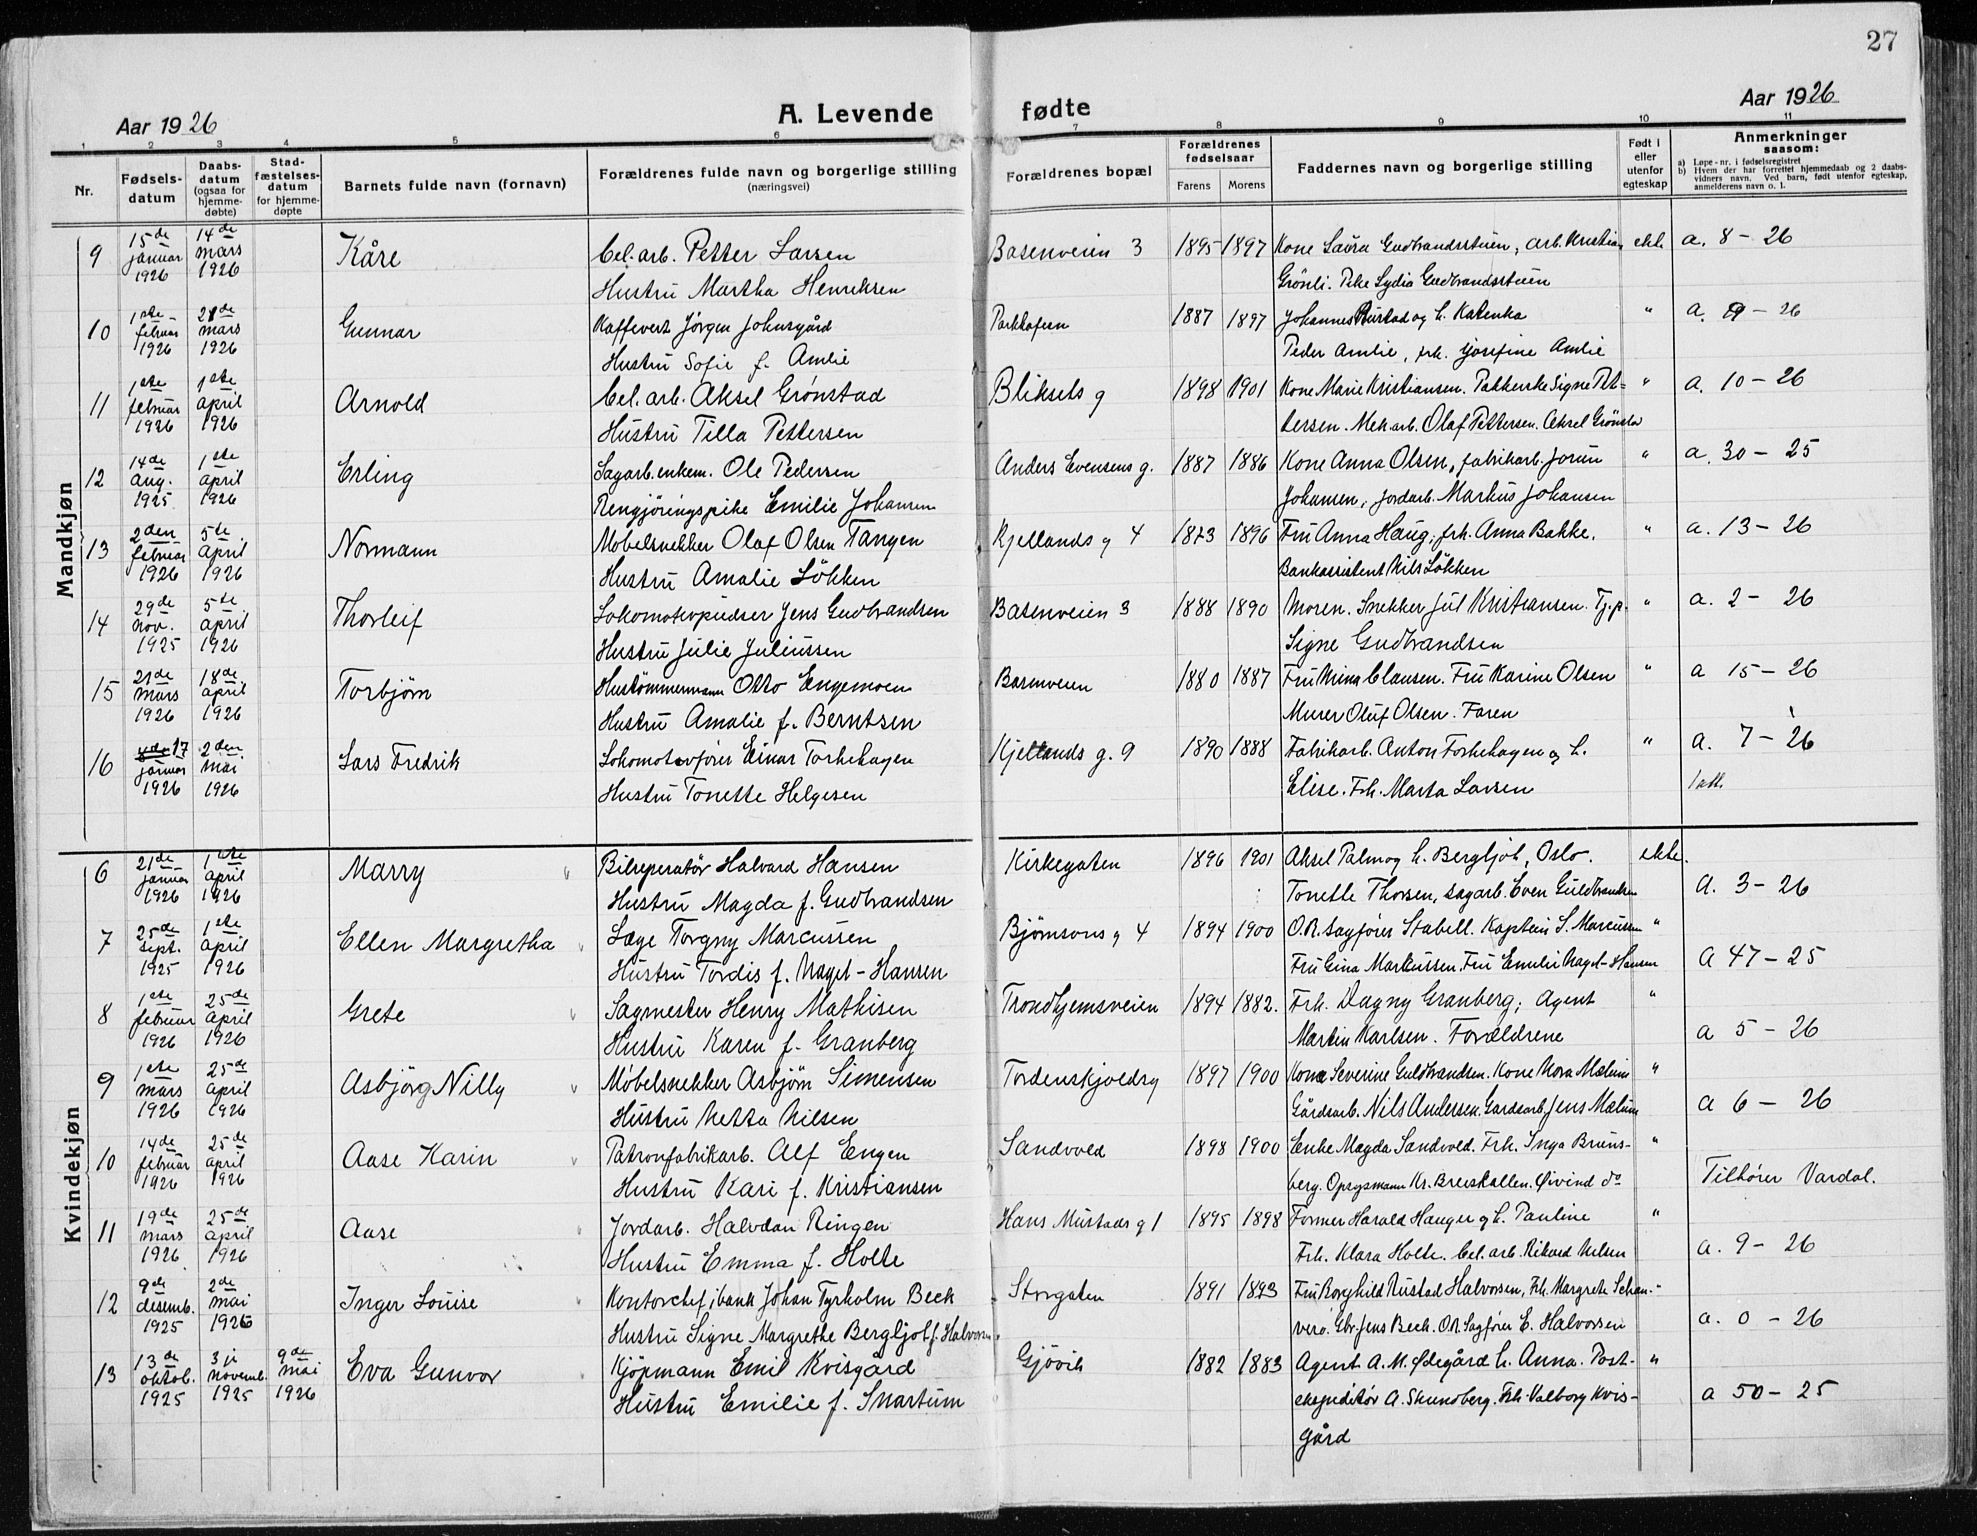 27
Aar 1926 A. Levende fødte Aar 1926
1 2 3 4 5 6 7 8 9 10 11
Nr. Fødselsdatum Daabsdatum (ogsaa for hjemmedøbte) Stadfæstelsesdatum for hjemmedøpte Barnets fulde navn (fornavn) Forældrenes fulde navn og borgerlige stilling (næringsvei) Forældrenes bopæl Forældrenes fødselsaar Farens Morens Faddernes navn og borgerlige stilling Født i eller utenfor egteskap Anmerkninger saasom:
a) Løpe-nr. i fødselsregistret
b) Hvem der har forrettet hjemmedaab og 2 daabsvidners navn. Ved barn, født utenfor egteskap, anmelderens navn o. l.
Mandkjøn
9 15de januar 1926 14de mars 1926 Kåre Cel. arb. Petter Larsen Basenveien 3 1895 1897 Kone Laura Gudbrandsstuen, arb. Kristian ekte a. 8 - 26
Hustru Martha Henriksen Grönli. Pike Lydia Gudbrandsstuen
10 1ste februar 1926 21de mars 1926 Gunnar Kaffevert Jørgen Johnsgård Parkkafeen 1887 1897 Johannes Rustad og h. Katenka " a. 9 - 26
Hustru Sofie f. Amlie Peder Amlie, frk. Josefine Amlie
11 1ste februar 1926 1ste april 1926 Arnold Cel. arb. Aksel Grønstad Bliksets g 1898 1901 Kone Marie Kristiansen. Pakkerske Signe Pet= " a. 10 - 26
Hustru Tilla Pettersen tersen. Mek. arb. Olaf Pettersen. Aksel Grönsta
12 14de aug. 1925 1ste april 1926 Erling Sagarb. enkem. Ole Pedersen Anders Evensens g. 1887 1886 Kone Anna Olsen, fabrikarb. Jorun " a. 30 - 25
Rengjøringspike Emilie Johansen Johansen, jordarb. Markus Johansen
13 2den februar 1926 5te april 1926 Normann Møbelsnekker Olaf Olsen Tangen Kjellands g 4 1873 1896 Fru Anna Haug, frk. Anna Bakke, " a. 13 - 26
Hustru Amalie Løkken Bankassistent Nils Løkken
14 29de nov. 1925 5te april 1926 Thorleif Lokomotivpudser Jens Gudbrandsen Basenveien 3 1888 1890 Moren. Snekker Jul Kristiansen. Tj.p. " a. 2 - 26
Hustru Julie Juliussen Signe Gudbrandsen
15 21de mars 1926 18de april 1926 Torbjørn Hustömmermann Otto Engemoen Basenveien 1880 1887 Fru Mina Clausen. Fru Karine Olsen " a 15 - 26
Hustru Amalie f. Berntsen Murer Oluf Olsen. Faren
16 17 januar 1926 2den mai 1926 Lars Fredrik Lokomotovfører Einar Torkehagen Kjellands g. 9 1890 1888 Fabrikarb. Anton Torkehagen og h. " a. 7 - 26
Hustru Tonette Helgesen Elise. Frk. Marta Larsen 1 att.
Kvindekjøn
6 21de januar 1926 1ste april 1926 Marry Bilreperatør Halvard Hansen Kirkegaten 1896 1901 Aksel Palm og h. Bergljot, Oslo. ekte.
Hustru Magda f. Gudbrandsen Tonette Thorsen, sagarb. Even Guldbrandsen a. 3 - 26
7 25de sept. 1925 1ste april 1926 Ellen Margretha Læge Torgny Marcussen Bjørnsons g 4 1894 1900 O.R. sagfører Stabell. Kaptein S. Marcussen "
Hustru Tordis f. Naget-Hansen Fru Gina Markussen. Fru Emilie Naget-Hansen a 47 - 25
8 1ste februar 1926 25de april 1926 Grete Sagmester Henry Mathisen Trondhjemsveien 1894 1882. Frk. Dagny Granberg; Agent "
Hustru Karen f. Granberg Martin Karlsen. Forældrene a 5 - 26
9 1ste mars 1926 25de april 1926 Asbjörg Nilly Møbelsnekker Asbjørn Simensen Tordenskjoldsg 1897 1900 Kone Severine Guldbrandsen. Kone Nora Mælum "
Hustru Netta Nilsen Gårdsarb. Nils Andersen. Gardsarb. Jens Mælum a 6 - 26
10 14de februar 1926 25de april 1926 Aase Karin Patronfabrikarb. Alf Engen Sandvold 1898 1900 Enke Magda Sandvold. Frk. Inga Bruns- "
Hustru Kari f. Kristiansen berg. Opsynsmann Kr. Breiskallen. Øivind do Tilhører Vardal.
11 19de mars 1926 25de april 1926 Aase Jordarb. Halvdan Ringen Hans Mustads g 1 1895 1898 Former Harald Hauger og h. Pauline "
Hustru Emma f. Holte Frk. Klara Holte. Cel. arb. Rikard Nelsen a. 9 - 26
12 9de desemb. 1925 2de mai 1926 Inger Louise Kontorchef i bank Johan Tyrholm Beck Storgaten 1891 1893 Fru Borghild Rustad Halvorsen, Frk. Margrete Schau- "
Hustru Signe Margrethe Bergljot f. Halvorsen vero. Gbr. Jens Beck. O.R. Sagfører E. Halvorsen a. 0 - 26
13 13de oktob. 1925 3je novemb. 1925 9de mai 1926 Eva Gunvor Kjöpmann Emil Kvisgård Gjøvik 1882 1883 Agent A. M. Ødegård h. Anna. Post- "
Hustru Emilie f. Snartum ekspeditör A. Skundberg. Frk. Valborg Kvis- a 50 - 25
gård